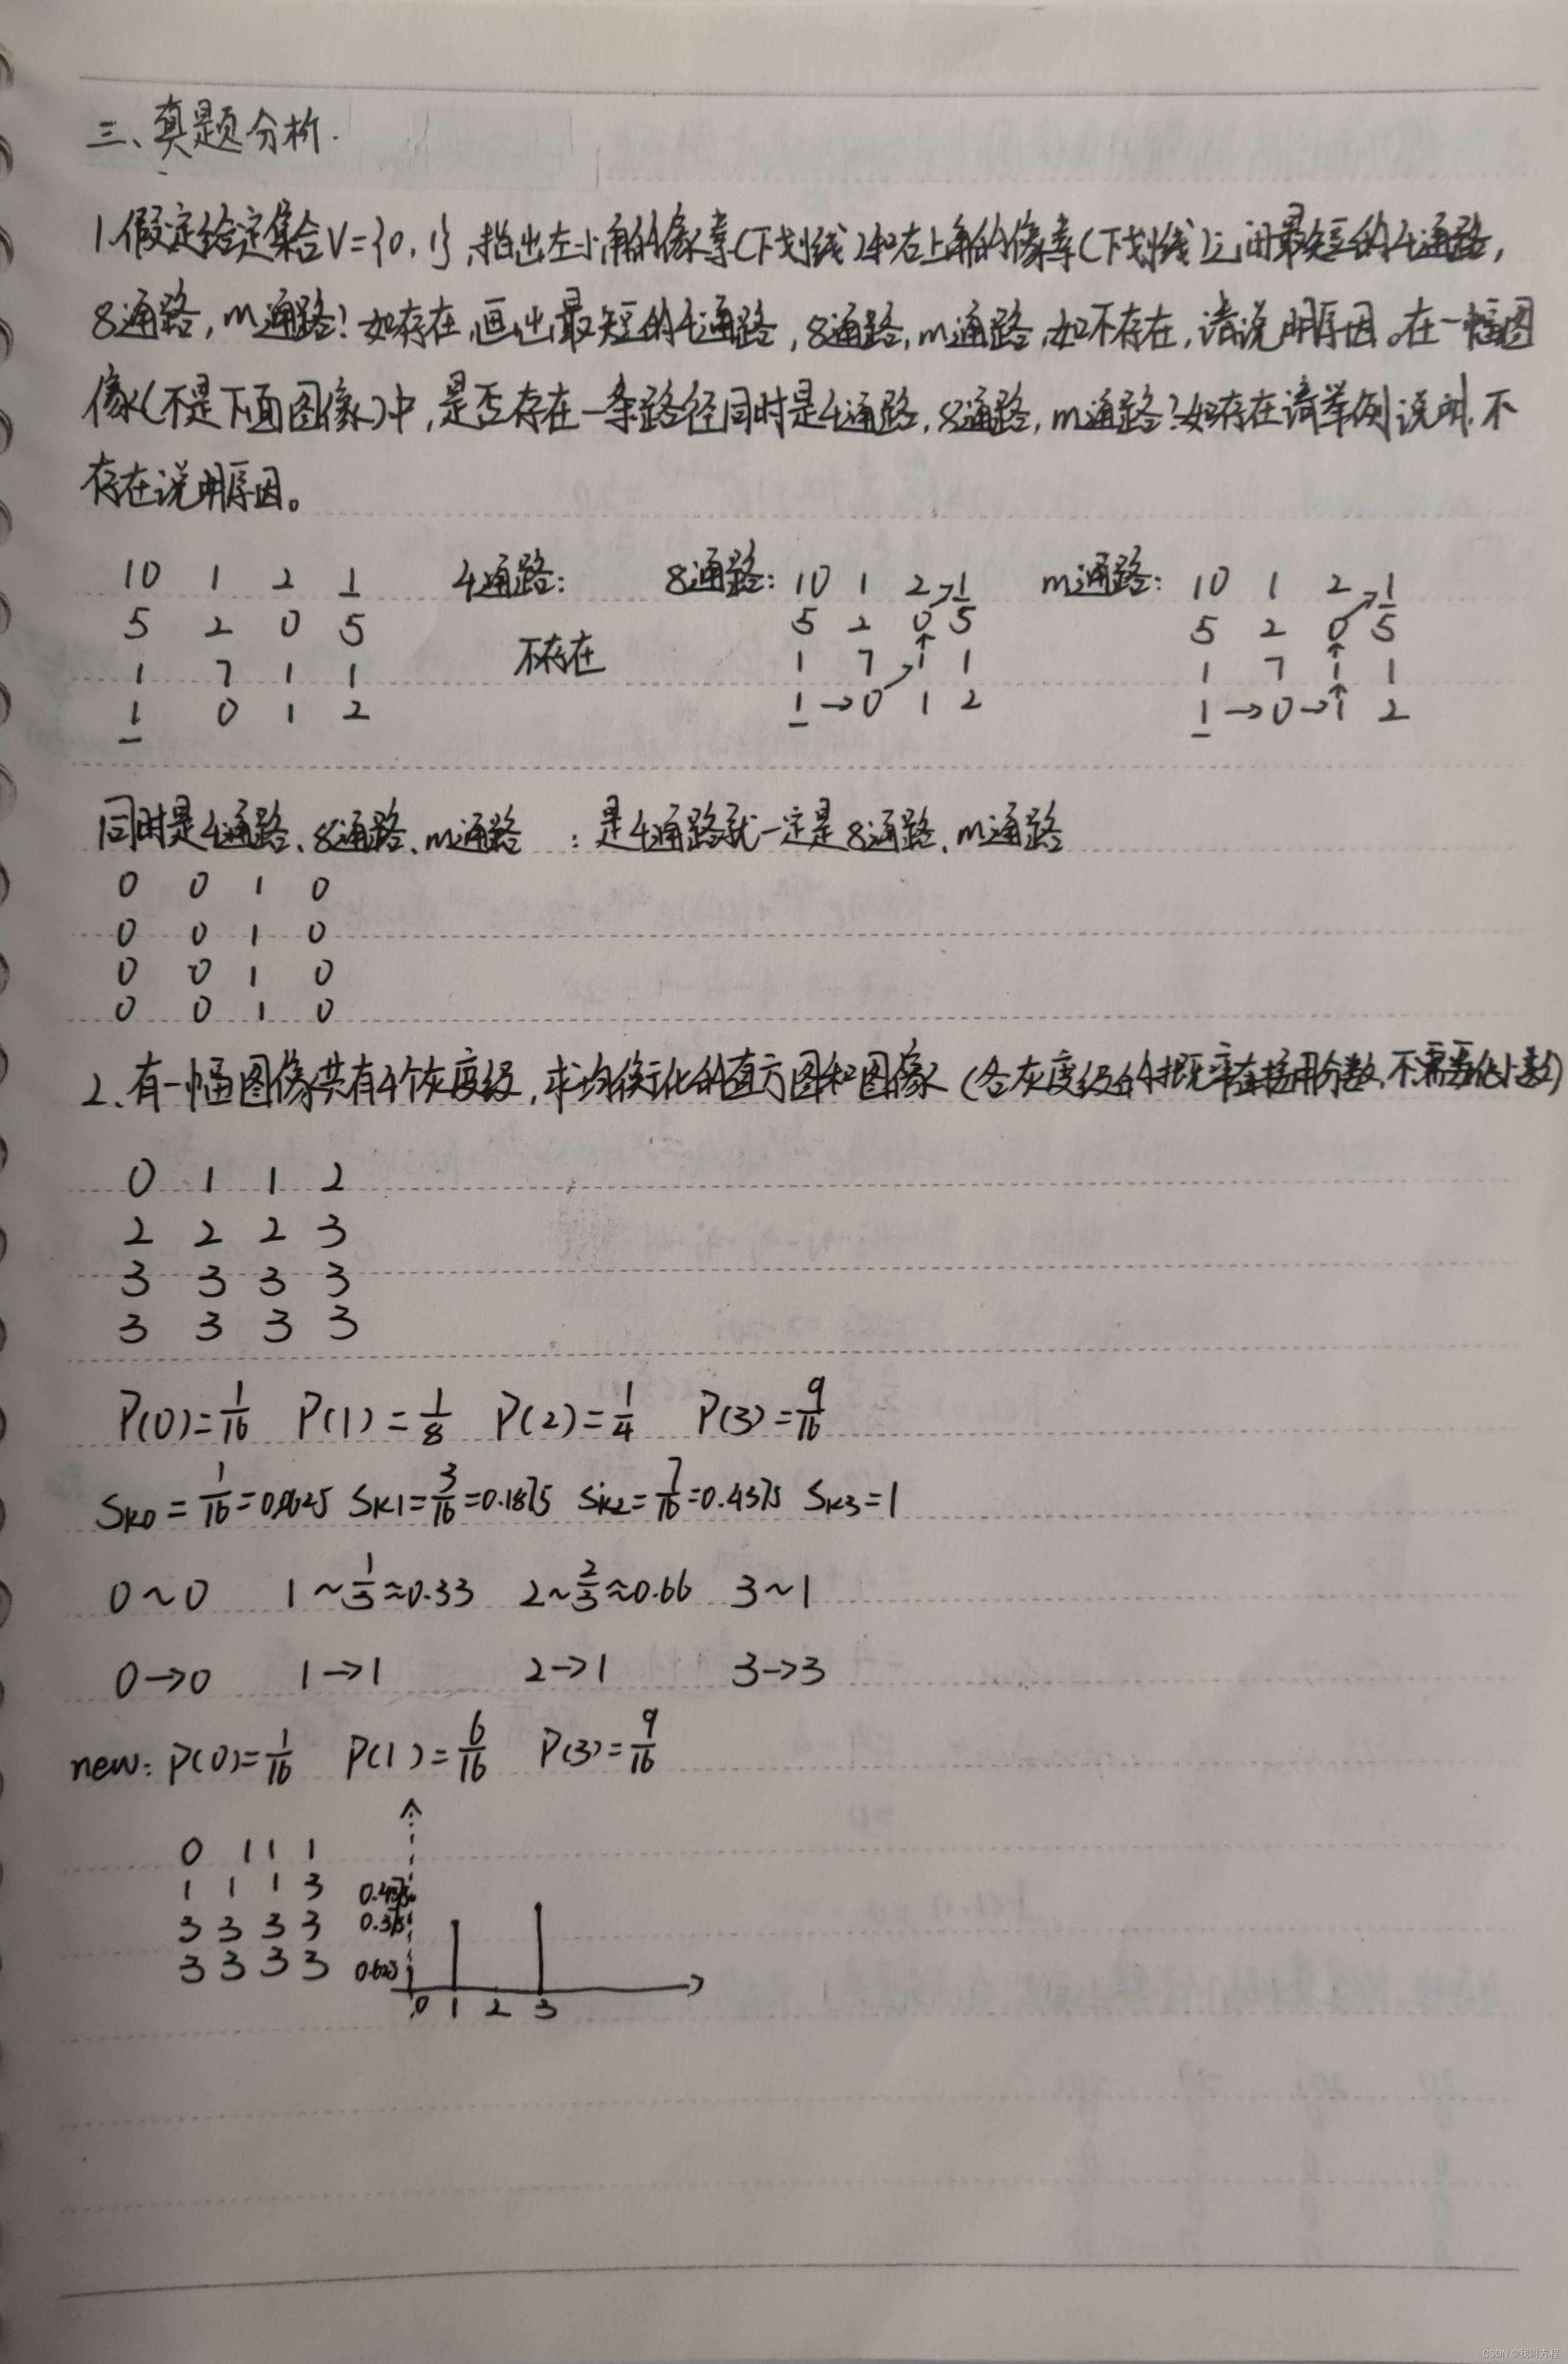 三、真题分析.
1.假定给定集合V={0,1},指出左下角的像素(下划线)和右上角的像素(下划线)之间最短的4通路,
8通路,m通路?如存在,画出最短的4通路,8通路,m通路,如不存在,请说明原因。在一幅图
像(不是下面图像)中,是否存在一条路径同时是4通路,8通路,m通路?如存在请举例说明,不
存在说明原因。
10 1 2 1 4通路: 8通路: 10 1 2↗1 m通路: 10 1 2 ↗1
5 2 0 5 5 2 0 5 5 2 0 5
1 7 1 1 不存在 1 7 ↗1 1 1 7 1 1
1 0 1 2 1→0 1 2 1→0→1 2
同时是4通路、8通路、m通路 : 是4通路就一定是8通路、m通路
0 0 1 0
0 0 1 0
0 0 1 0
0 0 1 0
2、有一幅图像共有4个灰度级,求均衡化的直方图和图像(各灰度级的概率直接用分数,不需要化小数)
0 1 1 2
2 2 2 3
3 3 3 3
3 3 3 3
P(0)=1/16 P(1)=1/8 P(2)=1/4 P(3)=9/16
Sk0=1/16=0.0625 Sk1=3/16=0.1875 Sk2=7/16=0.4375 Sk3=1
0~0 1~1/3≈0.33 2~2/3≈0.66 3~1
0→0 1→1 2→1 3→3
new: P(0)=1/16 P(1)=6/16 P(3)=9/16
0 1 1 1
1 1 1 3
3 3 3 3 0.375
3 3 3 3 0.625
0 1 2 3
CSDN @我叫方程